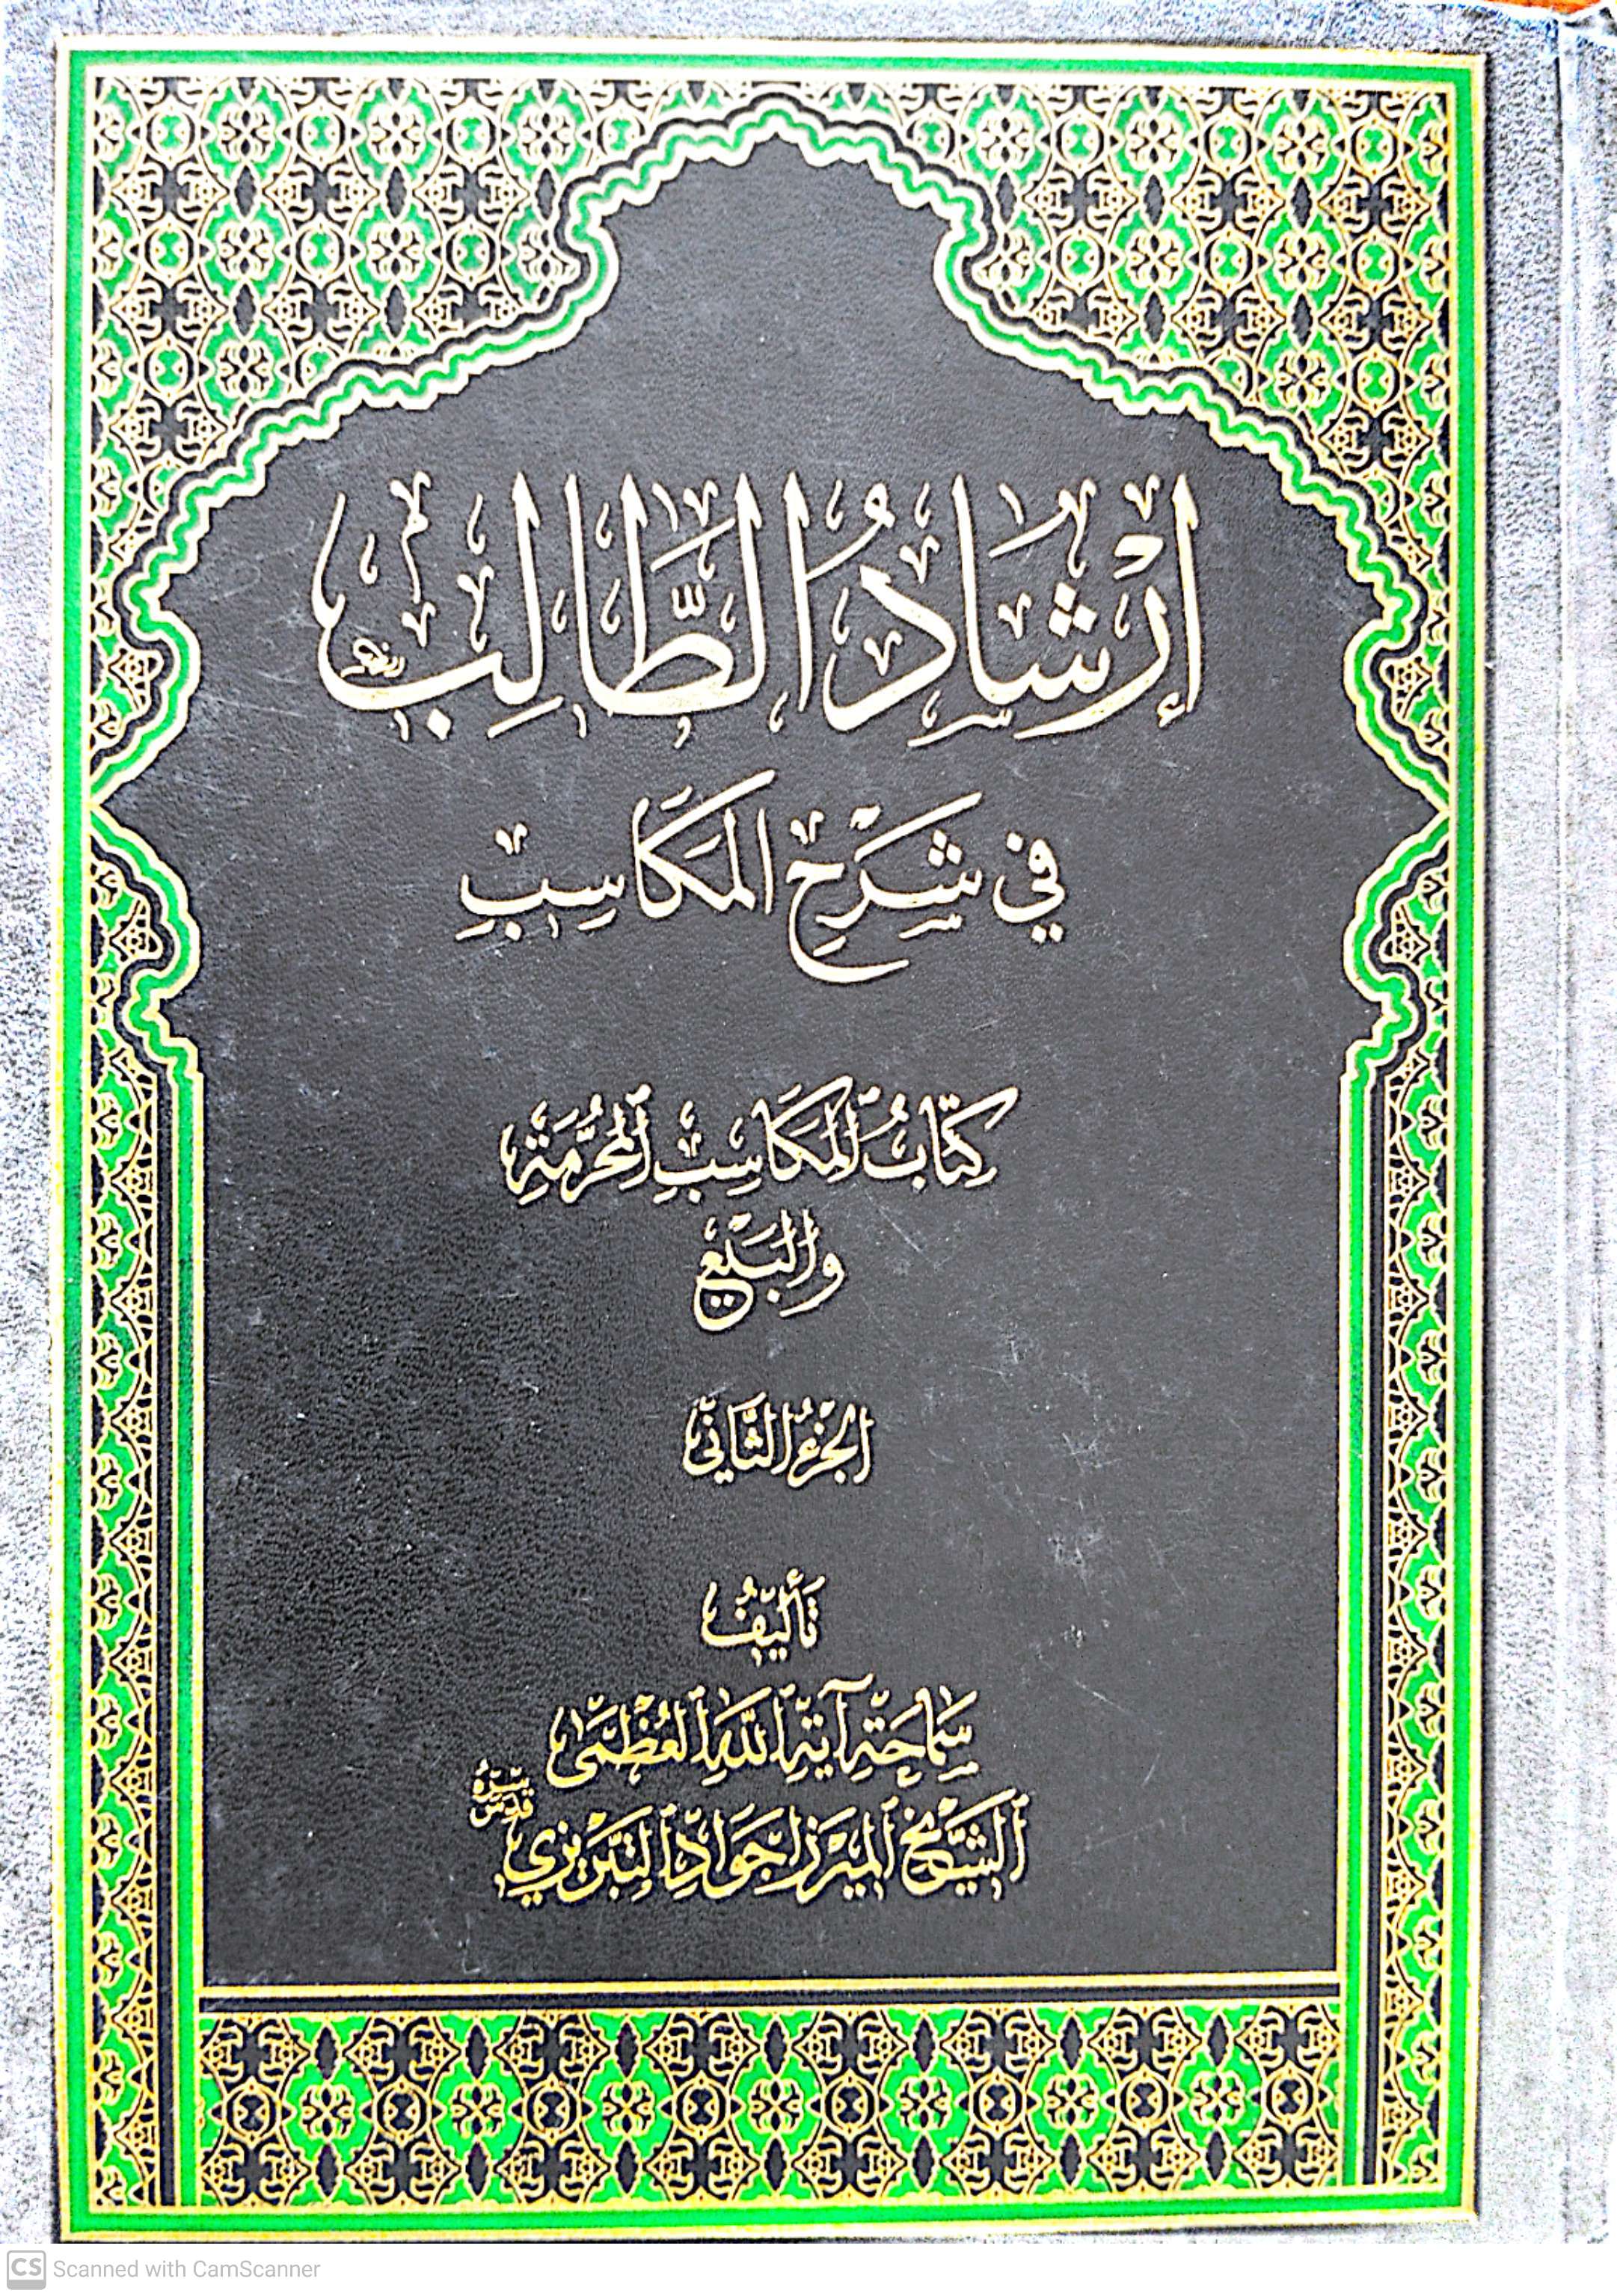 إِرْشَادُ الطَّالِب
فِي شَرْحِ المَكَاسِبِ
كِتَابُ المَكَاسِبِ المُحَرَّمَةِ
وَالبَيْعِ
الجُزْءُ الثَّانِي
تَأْلِيفُ
سَمَاحَةِ آيَةِ اللهِ العُظْمَى
الشَّيْخِ المِيرْزَا جَوَادِ التَّبْرِيزِي قُدِّسَ سِرُّهُ
CS Scanned with CamScanner